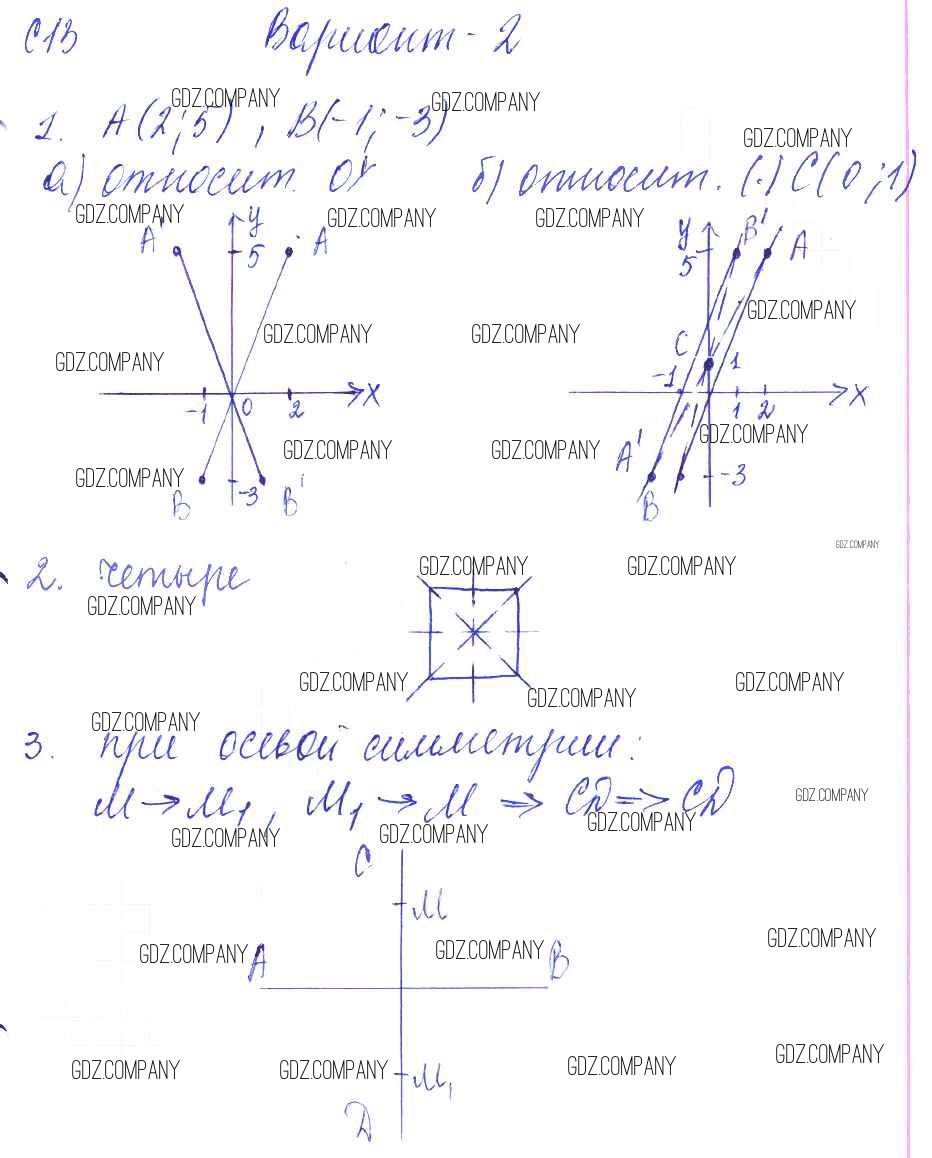 С13 Вариант - 2
GDZ.COMPANY GDZ.COMPANY
1. A(2;5), B(-1;-3)
GDZ.COMPANY
а) относит. OY б) относит. (·) C(0;1)
GDZ.COMPANY GDZ.COMPANY GDZ.COMPANY
A' y A y B' A
5 5
GDZ.COMPANY
GDZ.COMPANY GDZ.COMPANY
GDZ.COMPANY
C 1
-1 0 2 X -1 1 2 X
GDZ.COMPANY
GDZ.COMPANY GDZ.COMPANY
A'
GDZ.COMPANY
-3 -3
B B' B
GDZ.COMPANY
2. четыре
GDZ.COMPANY GDZ.COMPANY
GDZ.COMPANY
GDZ.COMPANY GDZ.COMPANY
GDZ.COMPANY
GDZ.COMPANY
3. при осевой симметрии:
M → M₁, M₁ → M ⇒ CD ⇒ CD
GDZ.COMPANY
GDZ.COMPANY GDZ.COMPANY GDZ.COMPANY
C
M
GDZ.COMPANY GDZ.COMPANY GDZ.COMPANY
A B
GDZ.COMPANY GDZ.COMPANY GDZ.COMPANY GDZ.COMPANY
M₁
D